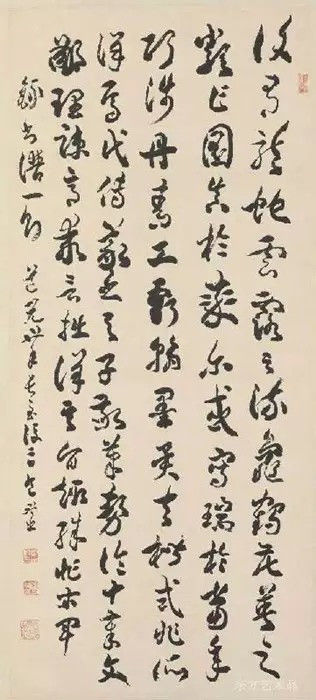 復有龍蛇雲露之流龜鶴花英之
類乍圖真於率爾或寫瑞於當年
巧涉丹青工虧翰墨異夫楷式非所
詳焉代傳羲之与子敬筆勢論十章文
鄙理疎意乖言拙詳其旨趣殊非右軍
錄書譜一節 道光